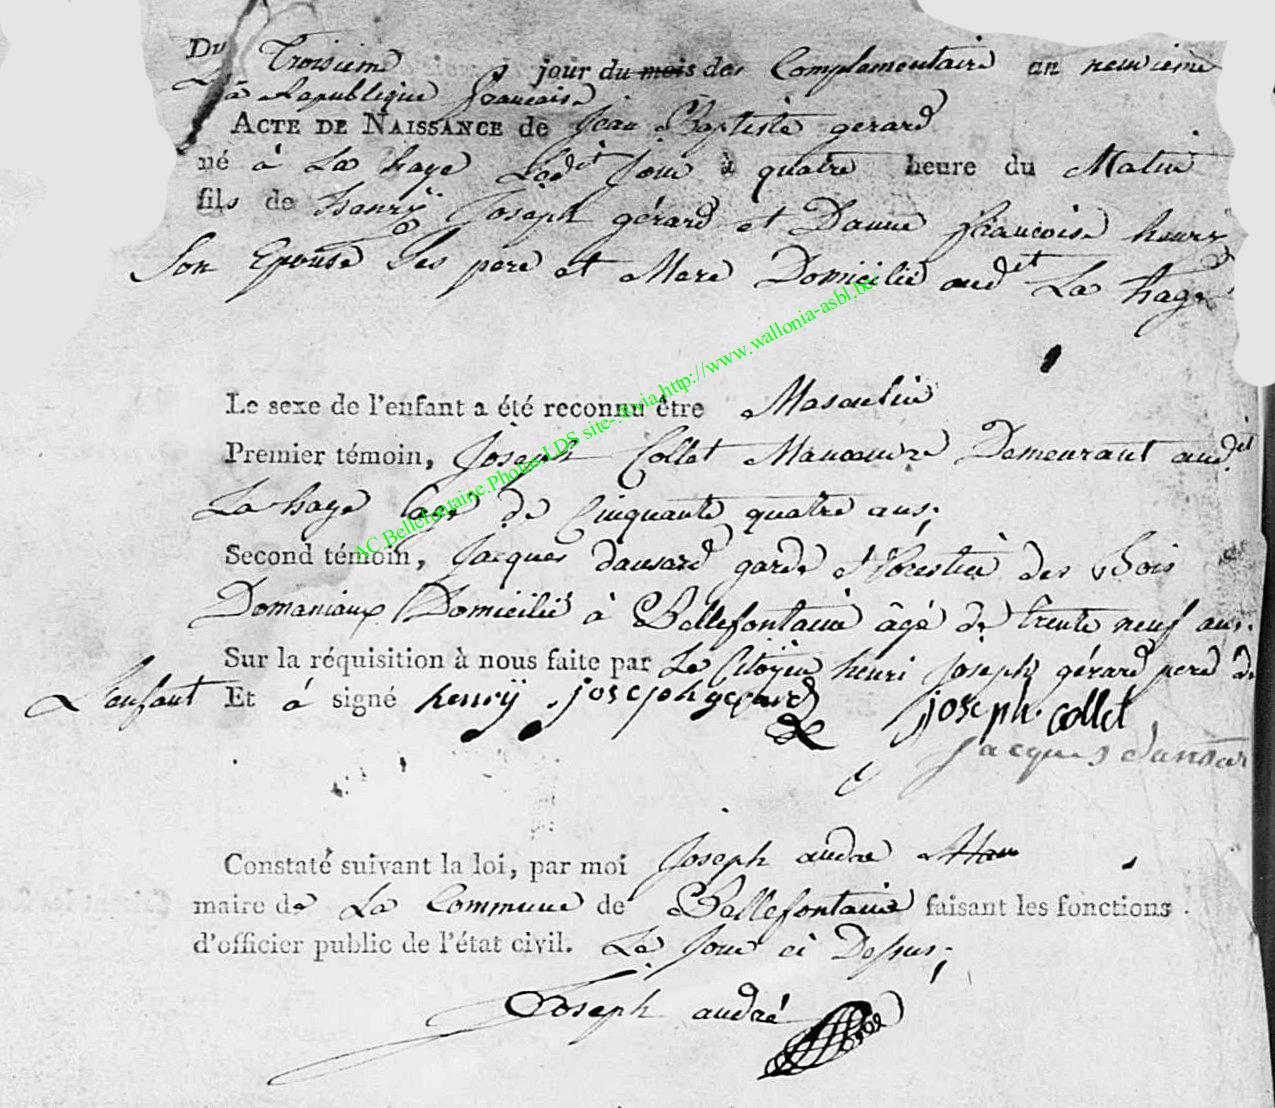 Du Troisieme jour du mois des Complementaire an neuvieme
La Republique francaise
ACTE DE NAISSANCE de Jean Baptiste gerard
né à La haye Ledit Jour à quatre heure du Matin
fils de Henrÿ Joseph gérard et Danne francoise henry
Son Epouse Ses pere et Mere Domicilié audit La haye
Le sexe de l'enfant a été reconnu être Masculin
Premier témoin, Joseph Collet Manoeuvre Demeurant audit
La haye agé de Cinquante quatre ans;
Second témoin, Jacques dansard garde Forestier des Bois
Domaniaux Domicilié à Bellefontaine âgé de trente neuf ans.
Sur la réquisition à nous faite par Le Citoÿen henri Joseph gérard pere de
L'enfant Et à signé henrÿ josephgerard joseph collet
jacques dansar
Constaté suivant la loi, par moi Joseph andre
maire de La Commune de Bellefontaine faisant les fonctions
d'officier public de l'état civil. Le Jour ci Dessus;
Joseph andré
AC Bellefontaine Photos LDS site- via http://www.wallonia-asbl.be/